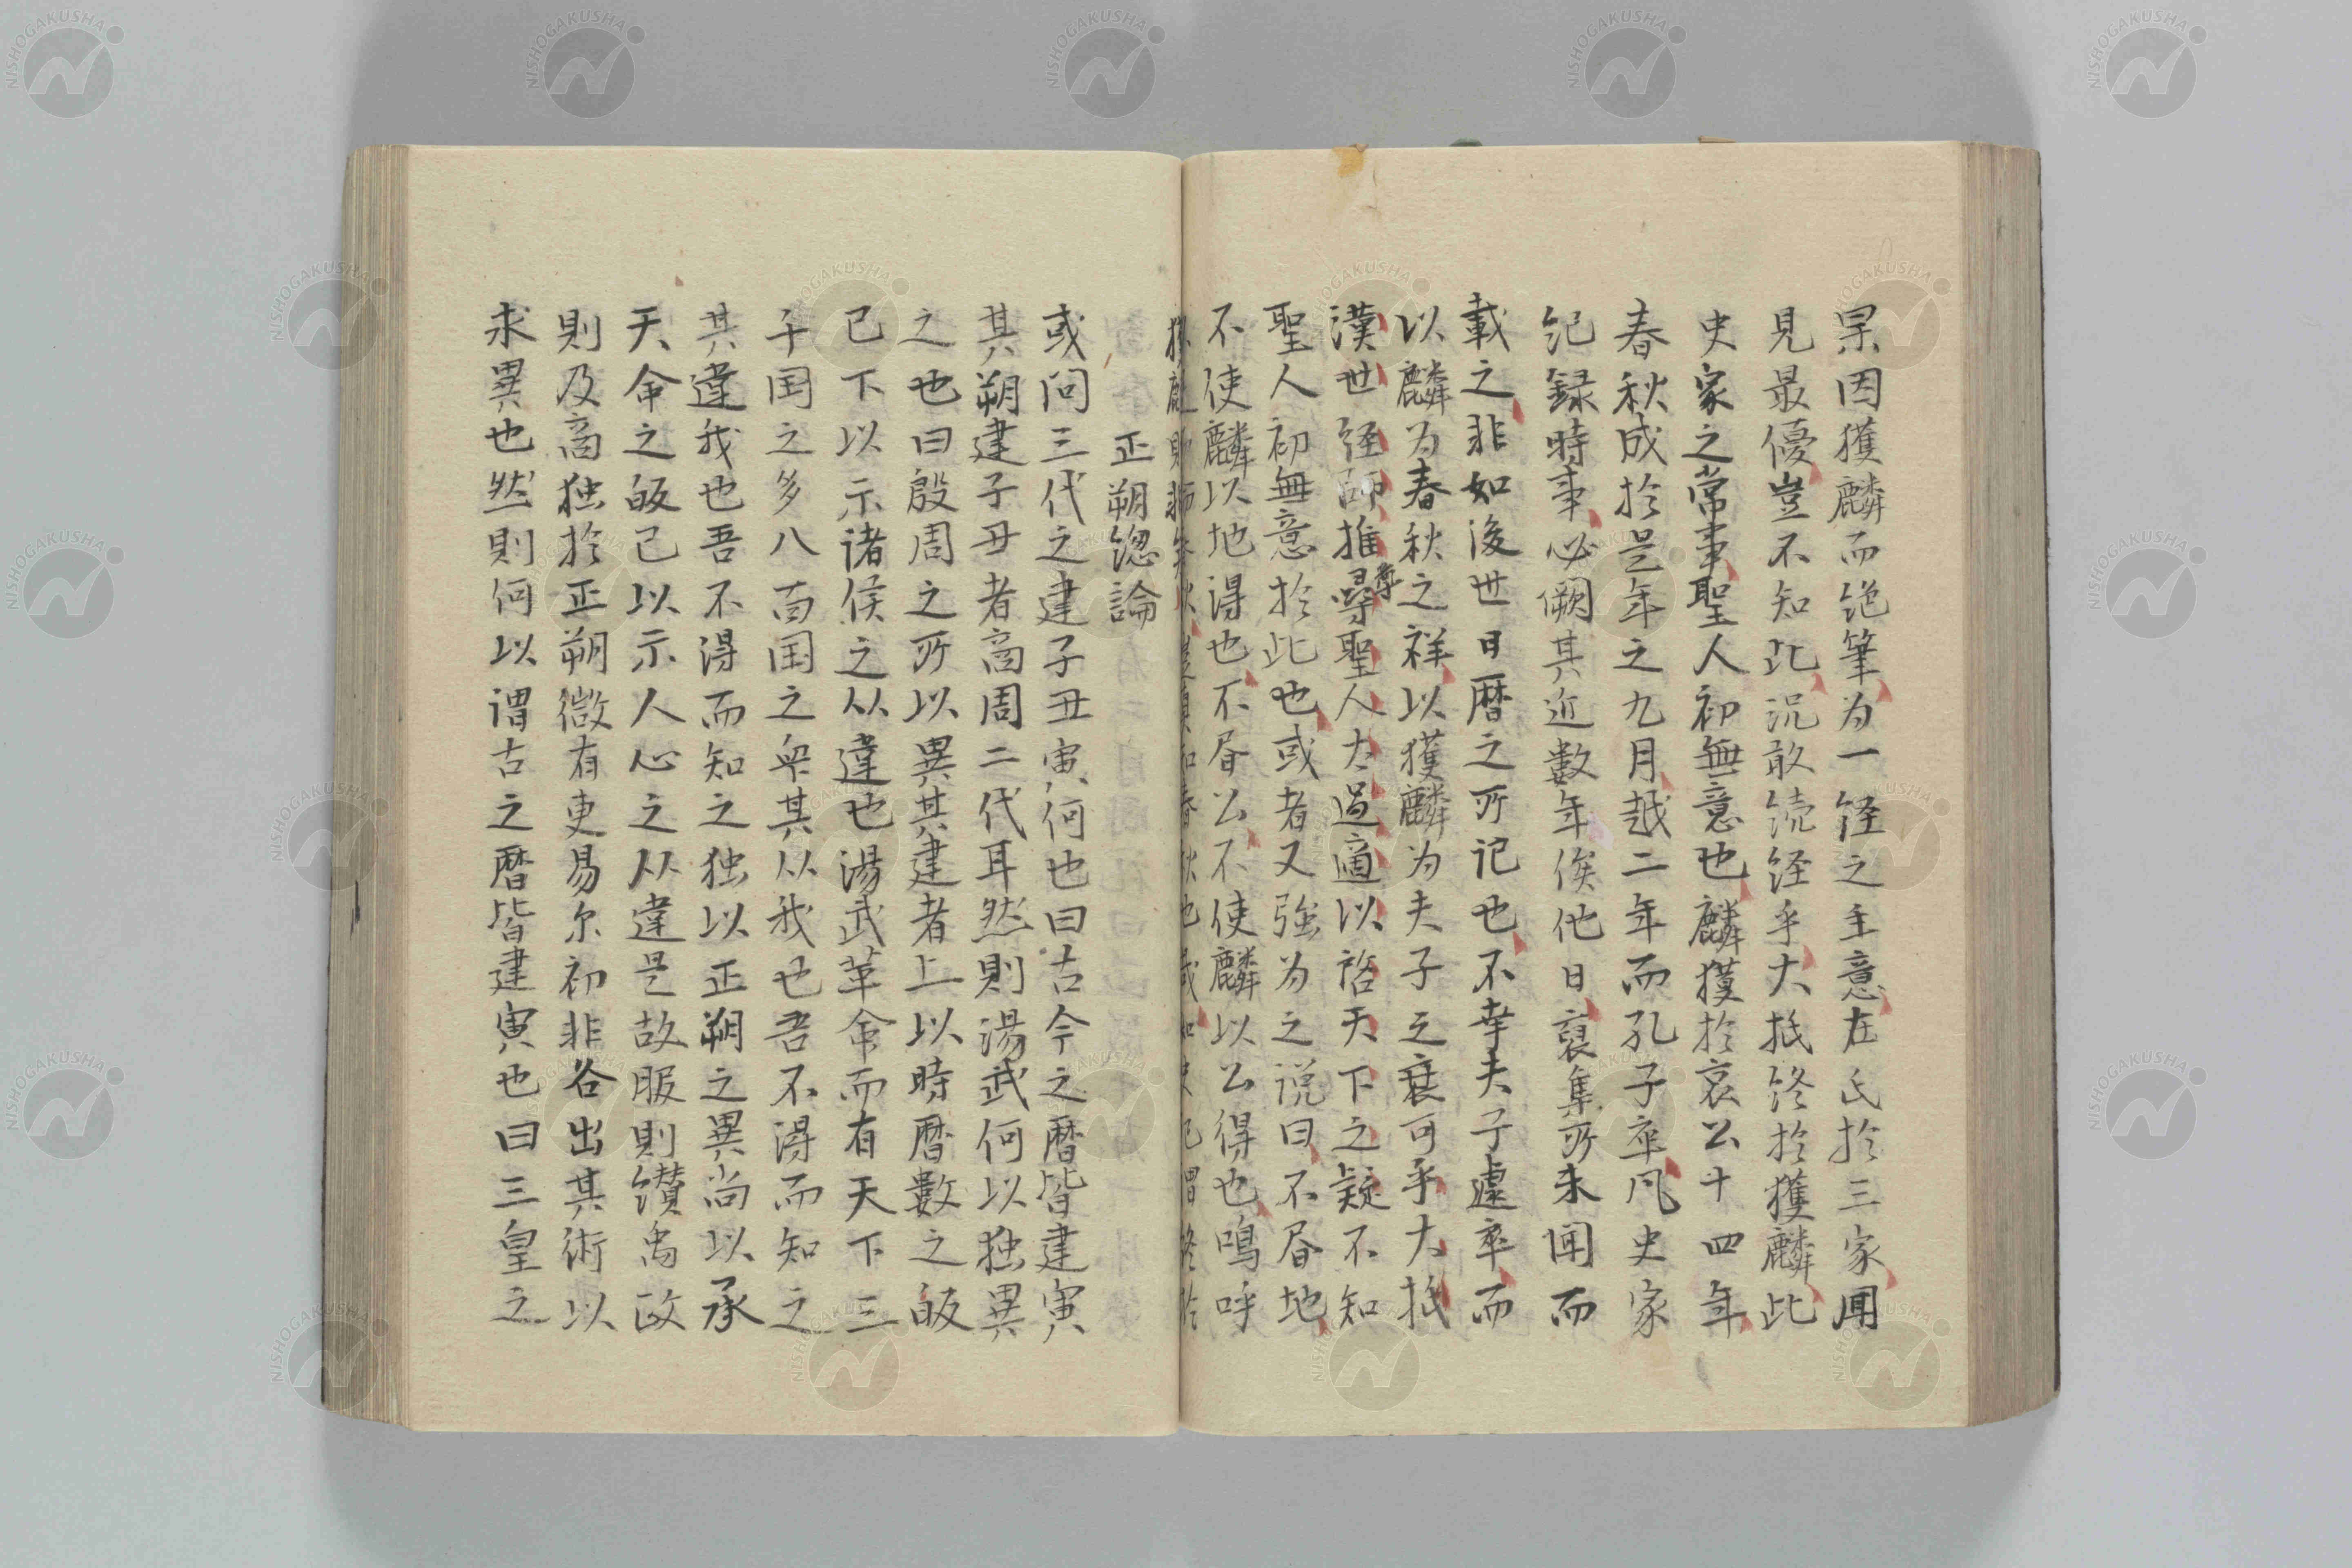 杲因獲麟而絶筆为一経之主意左氏於三家聞
見最優豈不知此况敢続経乎大抵終於獲麟此
史家之常事聖人初無意也麟獲於哀公十四年
春秋成於是年之九月越二年而孔子卒凡史家
紀録時事必闕其近数年俟他日裒集所未聞而
載之非如後世日暦之所记也不幸夫子遽卒而
以麟为春秋之祥以獲麟为夫子之衰可乎大抵
漢世経師推尋尊聖人太過適以啓天下之疑不知
聖人初無意於此也或者又強为之说曰不昏地
不使麟以地得也不昏公不使麟以公得也嗚呼
正朔緫論
或问三代之建子丑寅何也曰古今之暦皆建寅
其朔建子丑者商周二代耳然則湯武何以独異
之也曰殷周之所以異其建者上以時暦數之皈
已下以示诸侯之从違也湯武革命而有天下三
千国之多八百国之衆其从我也吾不得而知之
其違我也吾不得而知之独以正朔之異尚以承
天命之皈己以示人心之从違是故服則鑚禹政
則及商独於正朔微有更易尔初非各出其術以
求異也然則何以谓古之暦皆建寅也曰三皇之